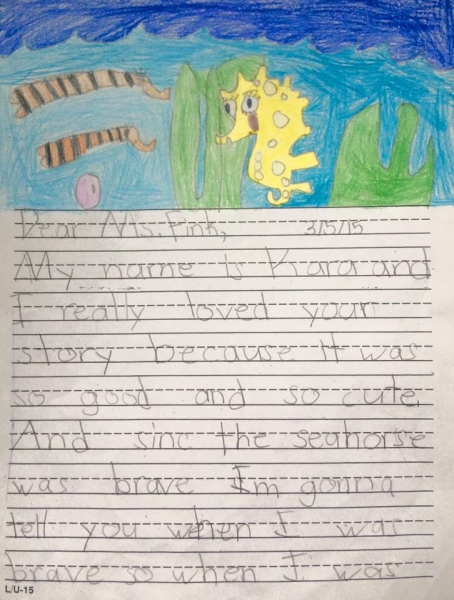 Dear Ms. Fink, 3/5/15
My name is Kara and
I really loved your
story because it was
so good and so cute.
And sinc the seahorse
was brave Im gonna
tell you when I was
brave so when I was
L/U-15